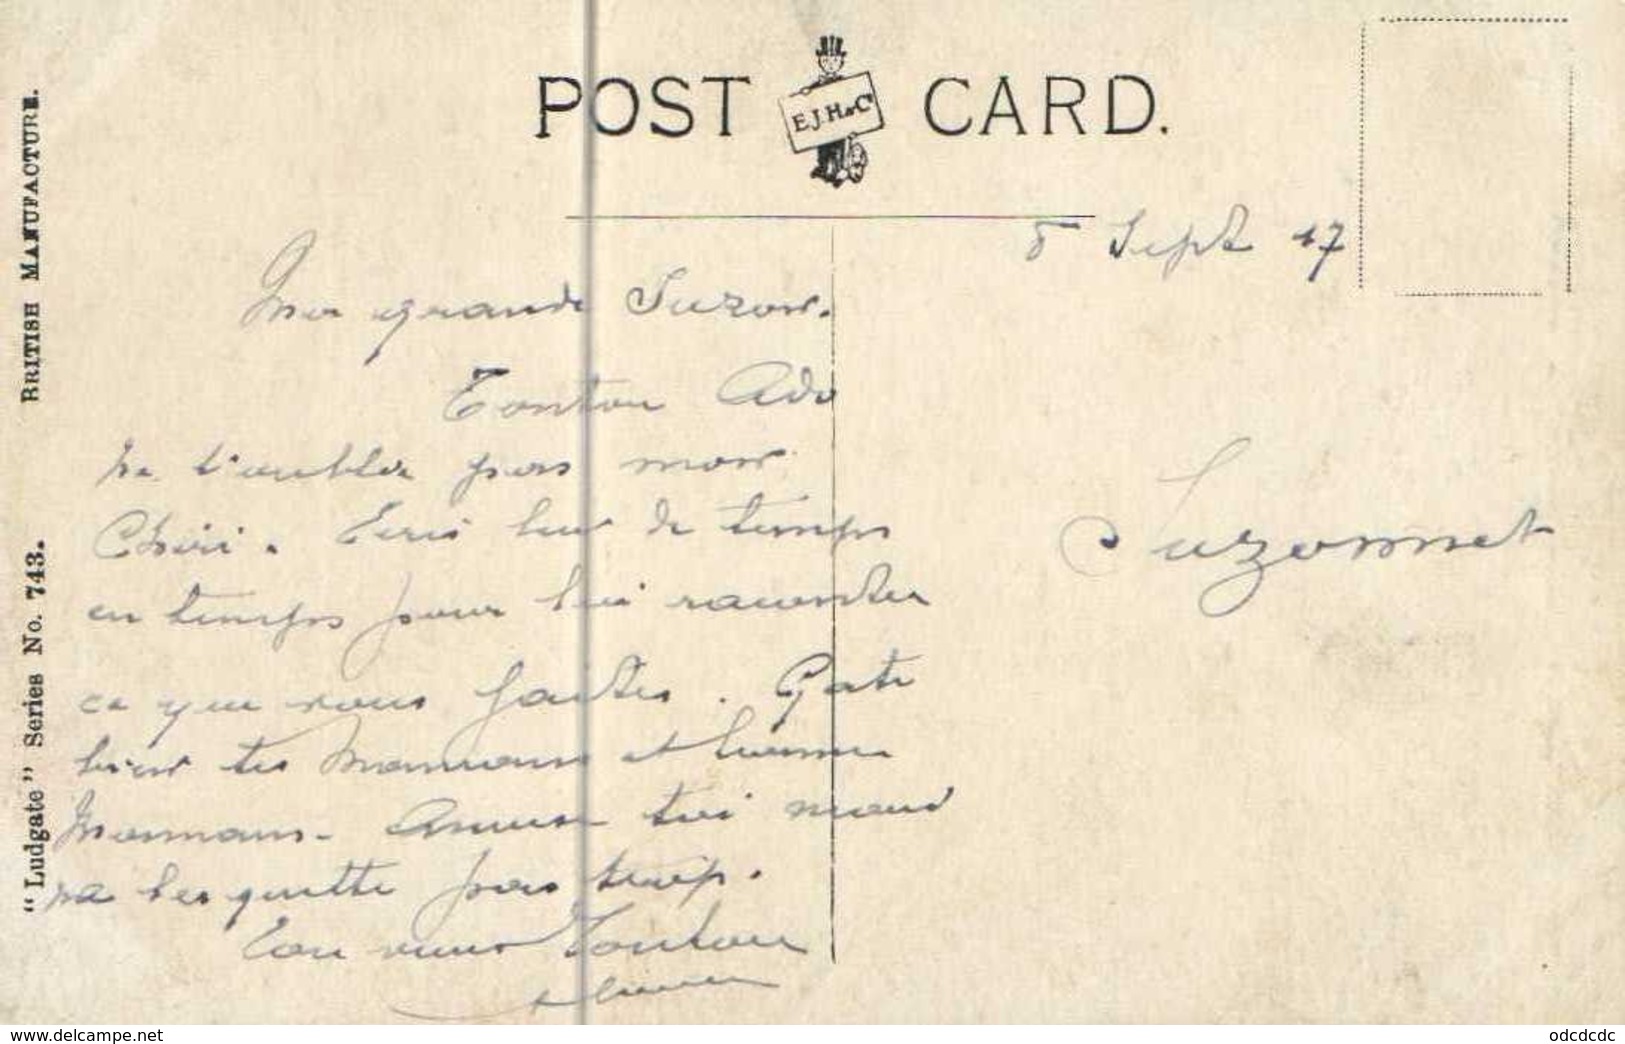 POST CARD.
E.J.H.&Co
BRITISH MANUFACTURE.
"Ludgate" Series No. 743.
8 Sept 17
Ma grande Suzon.
Tonton Ado
ne t'oublie pas mon
Chéri. Ecris lui de temps
en temps pour lui raconter
ce que vous faites. Gate
bien tes Mamans et bonne
Mamans. Amuse toi mais
ne les quitte pas trop.
Ton vieux Tonton
Suzonnet
www.delcampe.net
odcdcdc